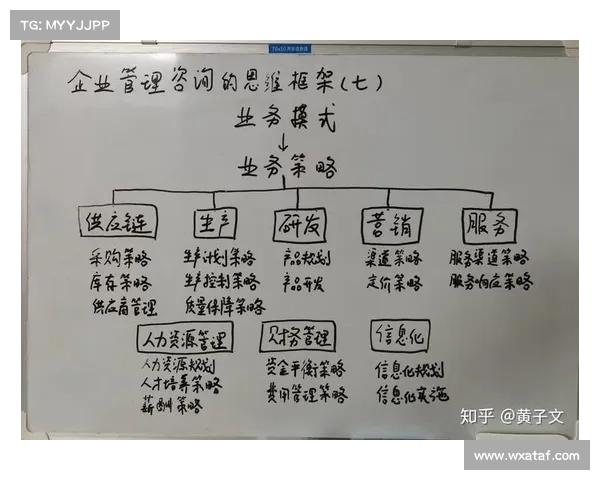 TG: MYYJJPP
企业管理咨询的思维框架(七)
业务模式
↓
业务策略
供应链 生产 研发 营销 服务
采购策略 生产计划策略 产品规划 渠道策略 服务渠道策略
库存策略 生产控制策略 产品开发 定价策略 服务响应策略
供应商管理 质量保障策略
人力资源管理 财务管理 信息化
人力资源规划 资金平衡策略 信息化规划
人才培养策略 费用管理策略 信息化实施
薪酬策略
知乎 @黄子文
www.wxataf.com